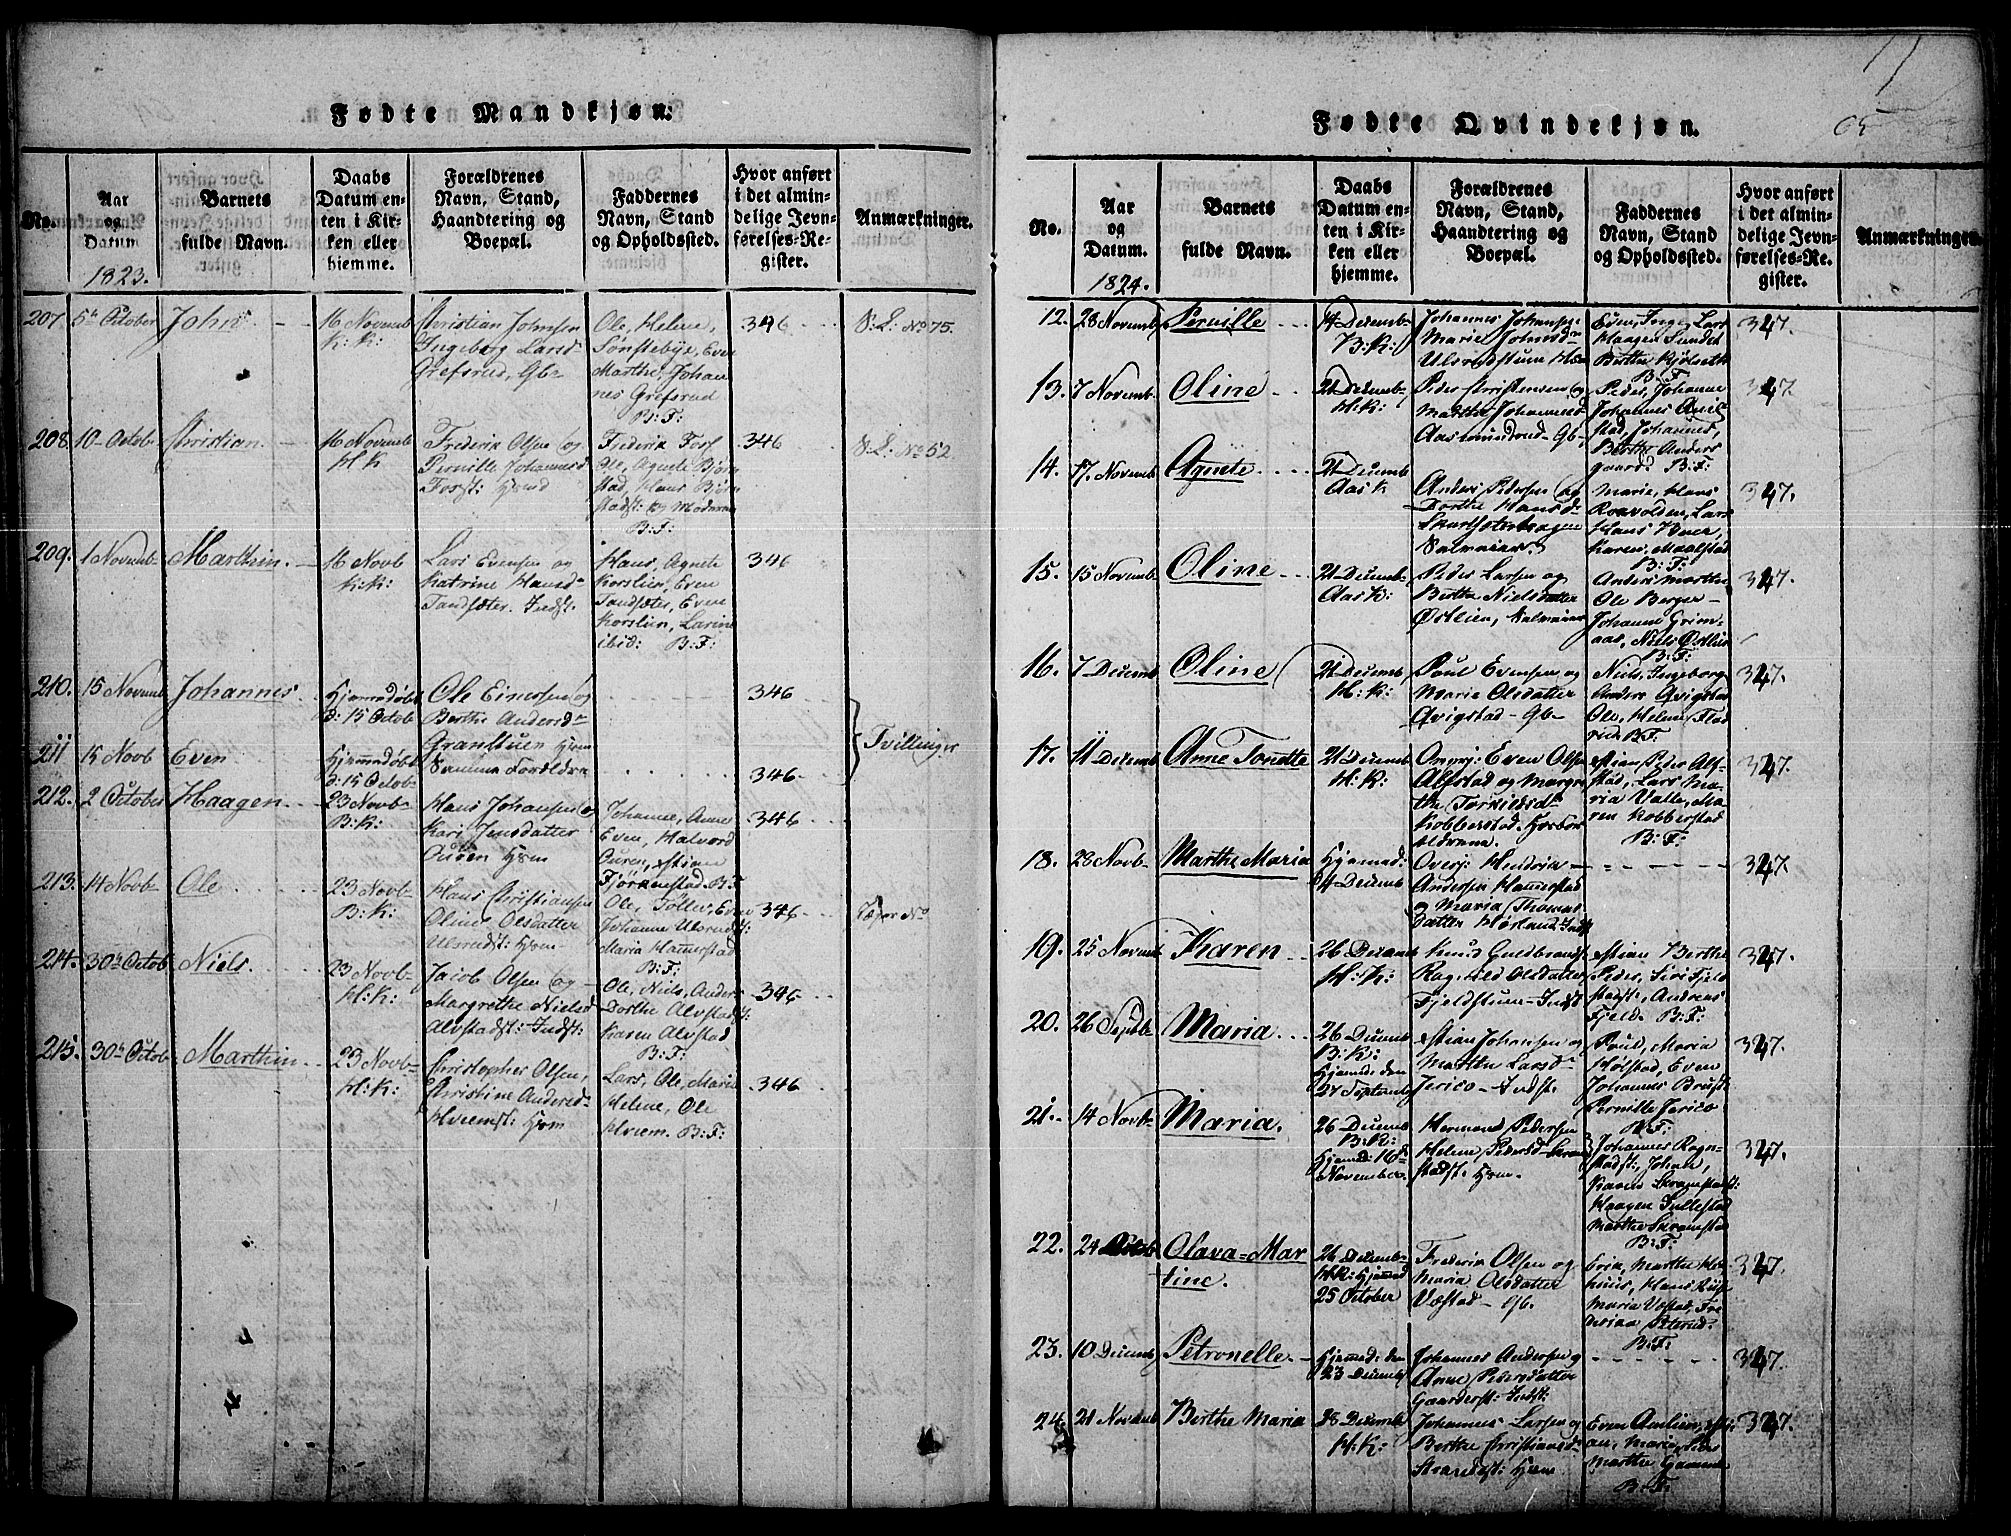 Fødte Mandkjøn.
No.
Aar
og
Datum
1823.
Barnets
fulde Navn.
Daabs
Datum en-
ten i Kir-
ken eller
hjemme.
Forældrenes
Navn, Stand,
Haandtering og
Boepæl.
Faddernes
Navn, Stand
og Opholdssted.
Hvor anført
i det almin-
delige Jevn-
førelses-Re-
gister.
Anmærkninger.
207. 5te October
John
16 Novemb
K: K:
Christian Johnsen
Ingeborg Larsd
Grefsrud, Gb
Ole, Helene,
Sønstebye, Even
Marthe, Johan
nes Grefsrud
B: F:
346
S: L: No 75.
208. 10 Octob
Christian
16 Novemb
H: K
Frederik Olsen og
Pernille Johannesd
Forst: Hem
Frederik Fors
Ole, Agnete Bjørn
stad, Hans Bjørn
stadst: og Moderen
B: F:
346
S: L: No 52.
209. 1 Novemb
Marthin.
16 Novb
K: K:
Lars Evensen og
Katrine Hansd
Tandsæter. Indst:
Hans, Agnete
Korslien, Even
Tandsæter, Even
Korslien, Larine
ibid: B: F:
346
210. 15 Novemb
Johannes
Hjemmedøbt
d: 15 Octob
Ole Einersen og
Berthe Andersd
Granstuen Hem
346
211 15 Novb
Even
Hjemmedøbt
d: 15 Octob
Samme Forældre
346
Tvillinger
212. 2 October
Haagen
23 Novb
B: K:
Hans Johansen og
Kari Jensdatter
Ouren Hem
Johanne, Anne
Even, Halvord
Ouren, Stian
Fjørkenstad. B: F
346
213. 14 Novb
Ole
23 Novb
B: K:
Hans Christiansen
Oline Olsdatter
Ulsrudst: Hem
Ole, Tøllev, Even
Johanne Ulsrudst:
Maria Hammerstad
B: F:
346
214. 30te Octob
Niels.
23 Novb
H: K:
Jacob Olsen og
Margrethe Nielsd
Alvstadst: Indst:
Ole, Niels, Anders
Dorthe Alvstadst:
Karen Alvstad
B: F:
346
215. 30te Octob
Marthin
23 Novb
H: K:
Christopher Olsen,
Christine Andersd
Hveemst: Hem
Lars, Ole, Marie
Helene, Ole
Hveem. B: F:
346
Fødte Qvindekjøn.
65
No.
Aar
og
Datum.
1824.
Barnets
fulde Navn.
Daabs
Datum en-
ten i Kir-
ken eller
hjemme.
Forældrenes
Navn, Stand,
Haandtering og
Boepæl.
Faddernes
Navn, Stand
og Opholdssted.
Hvor anført
i det almin-
delige Jevn-
førelses-Re-
gister.
Anmærkninger.
12. 23 Novemb
Pernille
14 Decemb
B: K:
Johannes Johansen
Marie Johnsd
Ulsrudstuen Hem
Even, Inge, Lars
Haagen Sundet
Berthe Kjølseth
B: F
347.
13. 7 Novemb
Oline
21 Decemb
H: K:
Peder Christensen og
Marthe Johannesd
Aasmundrud Gb
Peder, Johanne
Johannes Qvil
stad, Johannes,
Berthe Anders
gaard. B: F:
347
14. 17. Novemb
Agnete
21 Decemb
Aas K
Anders Pedersen og
Dorthe Hansd
Marie, Hans
Roevolden, Lars
Hans Huer,
Karen, Maalstad
B: F:
347.
15. 15 Novemb
Oline
21 Decemb
Aas K:
Peder Larsen og
Berthe Nielsdatter
Østlien,
Anders Marthe
Ole Berger
Johanne Grim
aas, Niels Østlie
B: F:
347.
16. 7 Decemb
Oline
21 Decemb
H: K:
Poul Evensen og
Marie Olsdatter
Qvigstad Gb
Niels, Ingeborg
Anders Qvigstad
Ole, Helene Flad
B: F.
347.
17. 11 Decemb
Anne Tonette
21 Decemb
H: K:
Even Olsen
Alfstad og Margre
the Torkildsd
Kobberstad.
Stian Peder Alf
stad, Lars Ma
ria Valle, Ma
ren Kobberstad
B: F:
347.
18. 28 Novb
Marthe Maria
Hjemmed:
14 Decemb
Hendrik
Andersen Hammerstad
og Maria Thomas
datter
347.
19. 25 Novemb
Karen
26 Decemb
H: K:
Knud Guldbrands
Ragnild Olsdatter
Fjeldstuen Indst
Stian Berthe
Peder, Siri Fjeld
stadst:, Andreas
Fjeld. B: F:
347.
20. 26 Septb
Maria
26 Decemb
B: K:
Hjemmd: den
27 Septemb
Stian Johansen og
Marthe Larsd
Jerico Indst:
Poul, Maria
Holstad, Even
Johannes Brust
Pernille Jerico
B: F:
347.
21. 14 Novb
Maria.
26 Decemb
B: K:
Hjemmd: 16de
November.
Hermand Pedersen
Helene Pedersd Skram
stadst. Hem.
Johannes Rogn
stadst:, Johan,
Karen Skramstadst:
Haagen Sullestad
Marthe Skramstad
B: F:
347.
22. 24 Octob
Olava=Mar
tine.
26 Decemb
H: K: Hjemmed
25 October
Frederik Olsen og
Maria Olsdatter
Væstad Gb.
Erik, Marthe
Maria Væstad, Fre
derikke
B: F:
347.
23. 10 Decemb
Petronelle.
Hjemmed: den
23 Decemb
Johannes Andersen og
Anne Pedersdatter
Gaarderst: Indst:
347.
24. 21 Novemb
Berthe Maria
28 Decemb
H: K:
Johannes Larsen og
Berthe Christiansd
Hem
Even Amlien,
Marthe
B: F:
347.